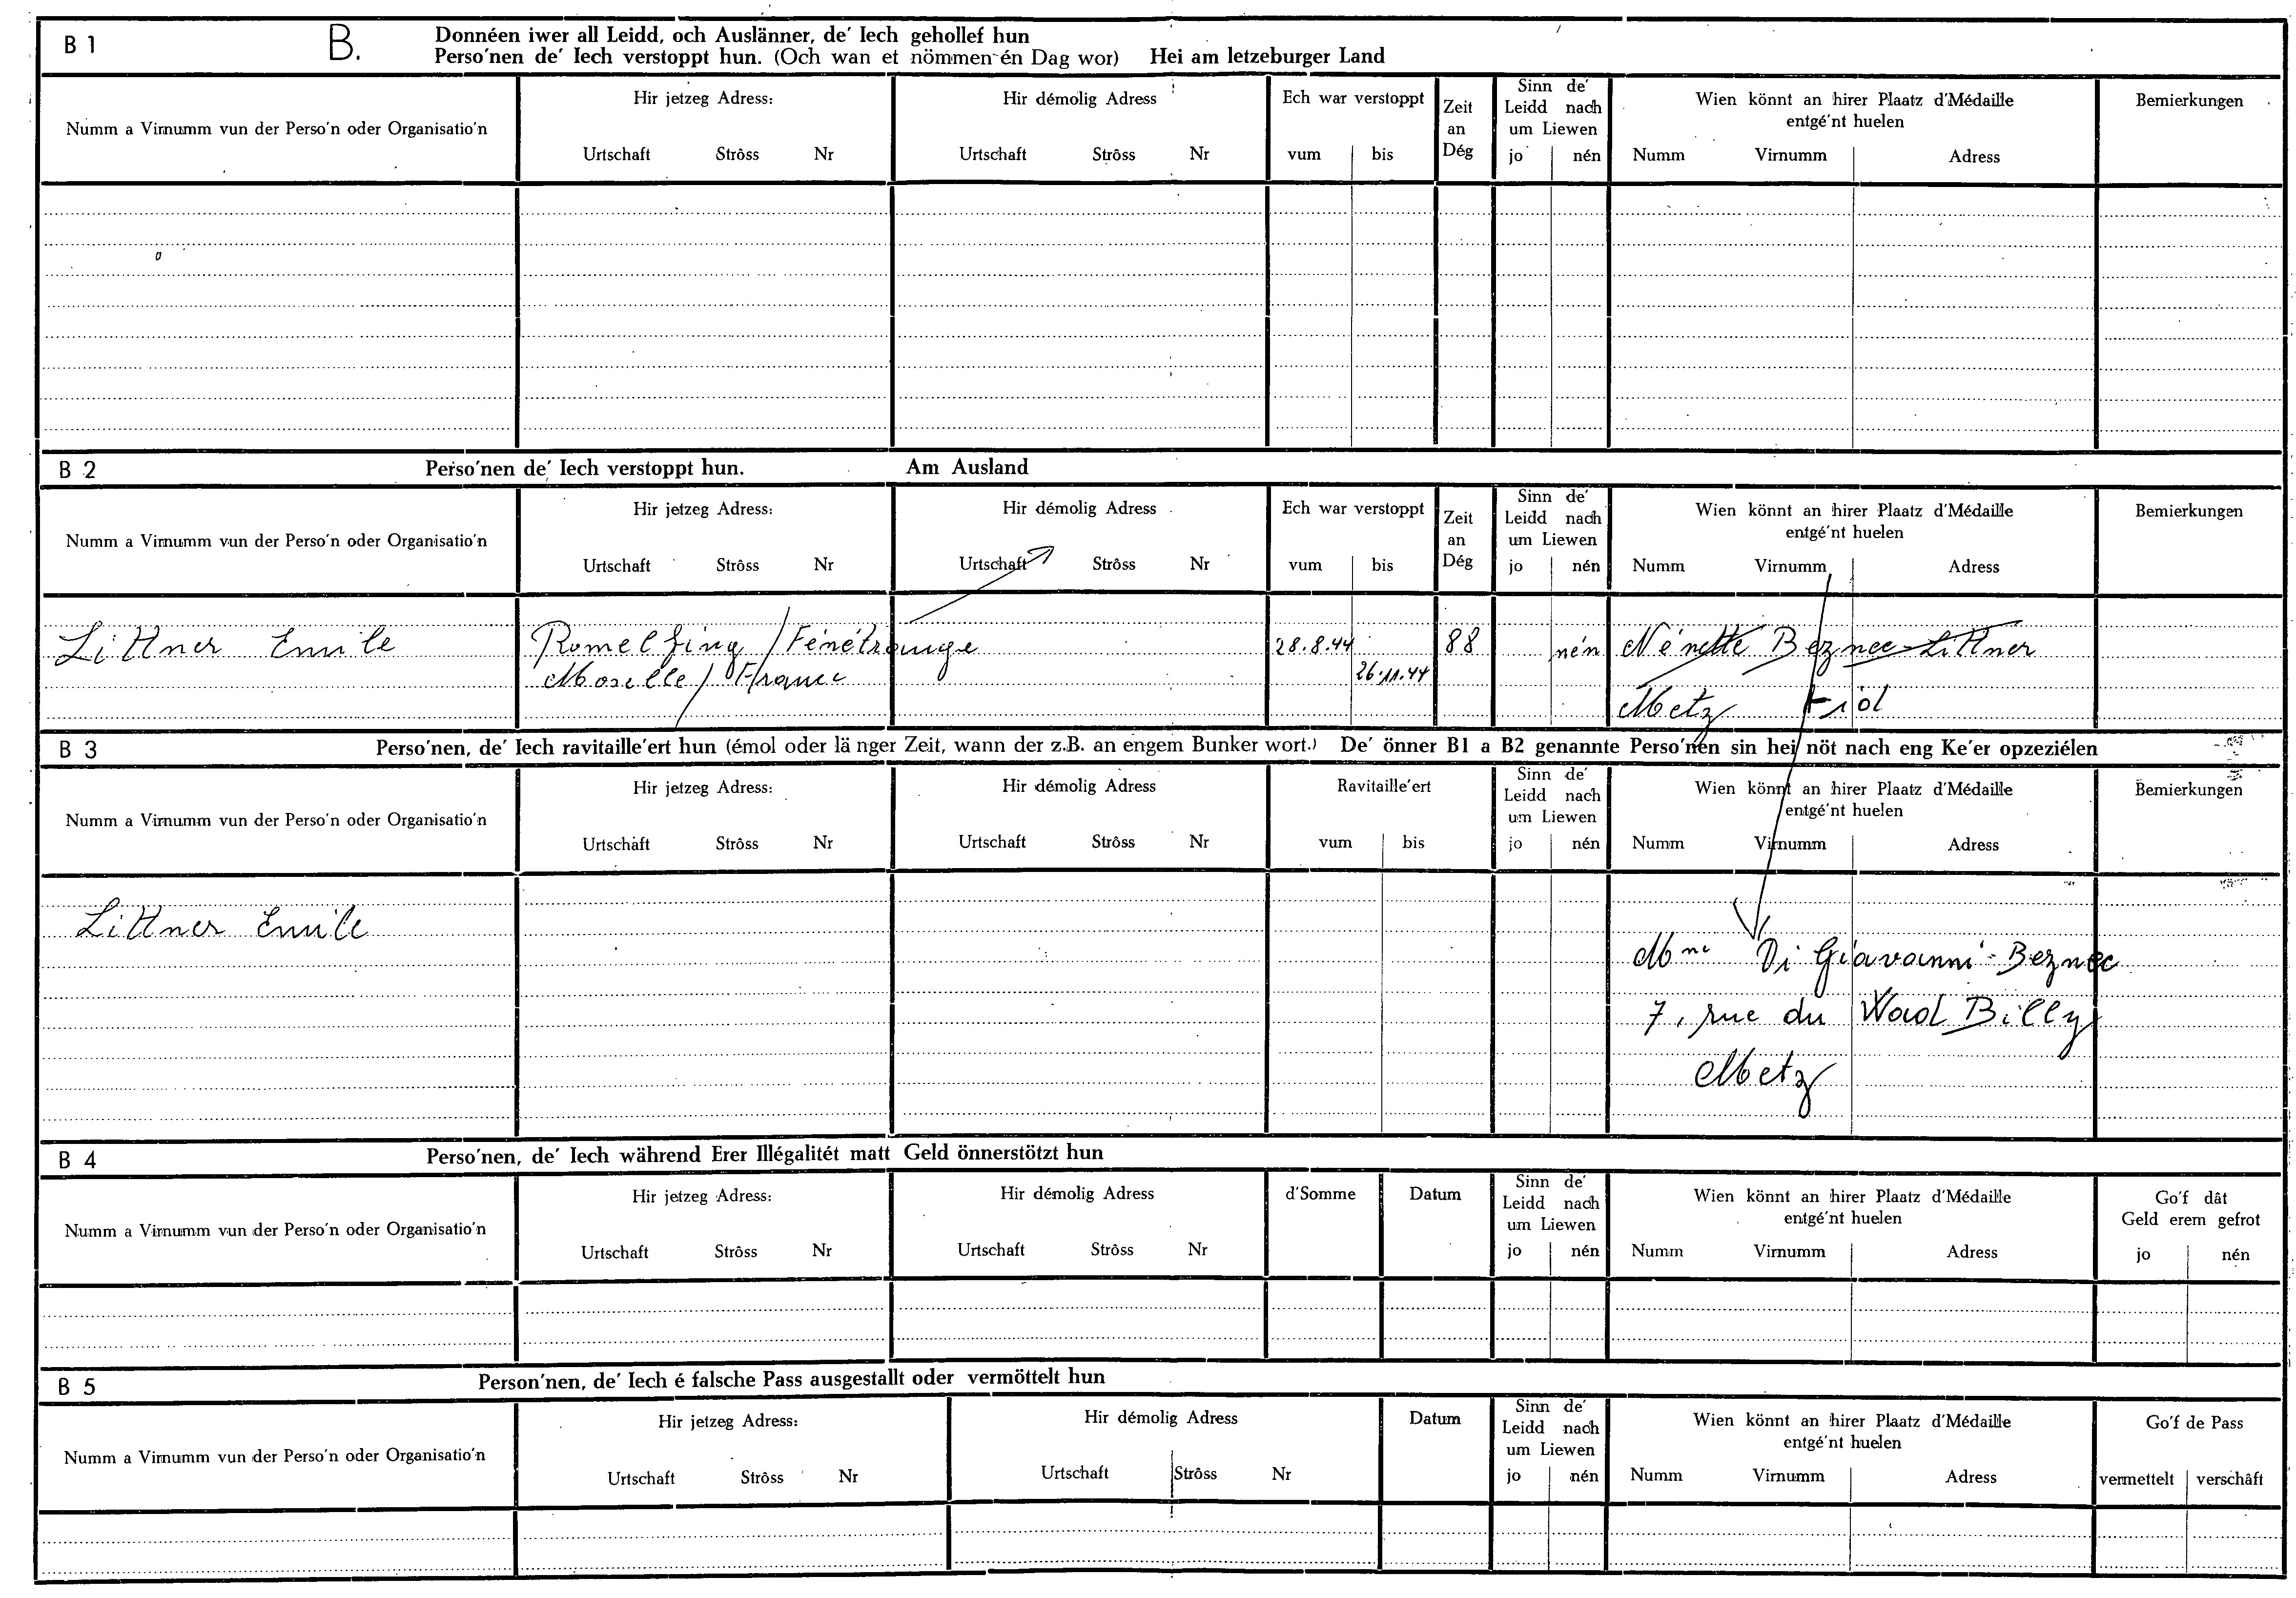 B 1 B. Donnéen iwer all Leidd, och Auslänner, de' Iech gehollef hun
Perso'nen de' Iech verstoppt hun. (Och wan et nömmen én Dag wor) Hei am letzeburger Land
Numm a Virnumm vun der Perso'n oder Organisatio'n
Hir jetzeg Adress:
Urtschaft Strôss Nr
Hir démolig Adress
Urtschaft Strôss Nr
Ech war verstoppt
vum bis
Zeit
an
Dég
Sinn de'
Leidd nach
um Liewen
jo nén
Wien könnt an hirer Plaatz d'Médaille
entgé'nt huelen
Numm Virnumm Adress
Bemierkungen
B 2 Perso'nen de' Iech verstoppt hun. Am Ausland
Numm a Virnumm vun der Perso'n oder Organisatio'n
Hir jetzeg Adress:
Urtschaft Strôss Nr
Hir démolig Adress
Urtschaft Strôss Nr
Ech war verstoppt
vum bis
Zeit
an
Dég
Sinn de'
Leidd nach
um Liewen
jo nén
Wien könnt an hirer Plaatz d'Médaille
entgé'nt huelen
Numm Virnumm Adress
Bemierkungen
Littner Emile Romelfing / Fénétrange 28.8.44 88 nén Nénette Beznec-Littner
Moselle / France 26.11.44
Metz
B 3 Perso'nen, de' Iech ravitaille'ert hun (émol oder länger Zeit, wann der z.B. an engem Bunker wort.) De' önner B1 a B2 genannte Perso'nen sin hei nöt nach eng Ke'er opzeziélen
Numm a Virnumm vun der Perso'n oder Organisatio'n
Hir jetzeg Adress:
Urtschaft Strôss Nr
Hir démolig Adress
Urtschaft Strôss Nr
Ravitaille'ert
vum bis
Sinn de'
Leidd nach
um Liewen
jo nén
Wien könnt an hirer Plaatz d'Médaille
entgé'nt huelen
Numm Virnumm Adress
Bemierkungen
Littner Emile
Mme Di Giavanni-Beznec
7, rue du Wad Billy
Metz
B 4 Perso'nen, de' Iech während Erer Illégalitét matt Geld önnerstötzt hun
Numm a Virnumm vun der Perso'n oder Organisatio'n
Hir jetzeg Adress:
Urtschaft Strôss Nr
Hir démolig Adress
Urtschaft Strôss Nr
d'Somme
Datum
Sinn de'
Leidd nach
um Liewen
jo nén
Wien könnt an hirer Plaatz d'Médaille
entgé'nt huelen
Numm Virnumm Adress
Go'f dât
Geld erem gefrot
jo nén
B 5 Person'nen, de' Iech é falsche Pass ausgestallt oder vermöttelt hun
Numm a Virnumm vun der Perso'n oder Organisatio'n
Hir jetzeg Adress:
Urtschaft Strôss Nr
Hir démolig Adress
Urtschaft Strôss Nr
Datum
Sinn de'
Leidd nach
um Liewen
jo nén
Wien könnt an hirer Plaatz d'Médaille
entgé'nt huelen
Numm Virnumm Adress
Go'f de Pass
vermettelt verschâft